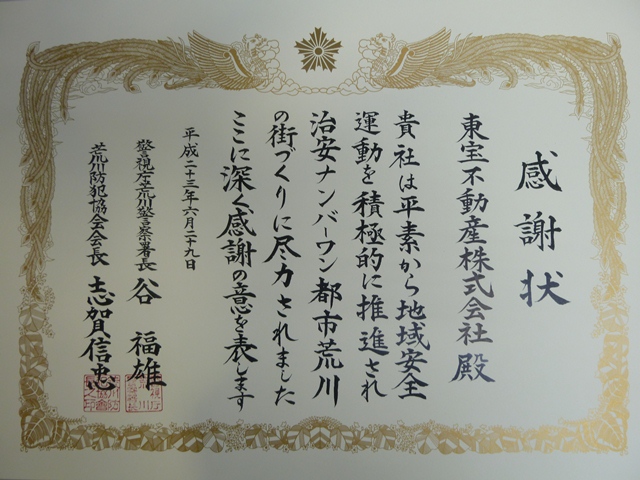 感謝状
東宝不動産株式会社 殿
貴社は平素から地域安全
運動を積極的に推進され
治安ナンバーワン都市荒川
の街づくりに尽力されました
ここに深く感謝の意を表します
平成二十三年六月二十九日
警視庁荒川警察署長 谷 福雄
荒川防犯協会会長 志賀信忠